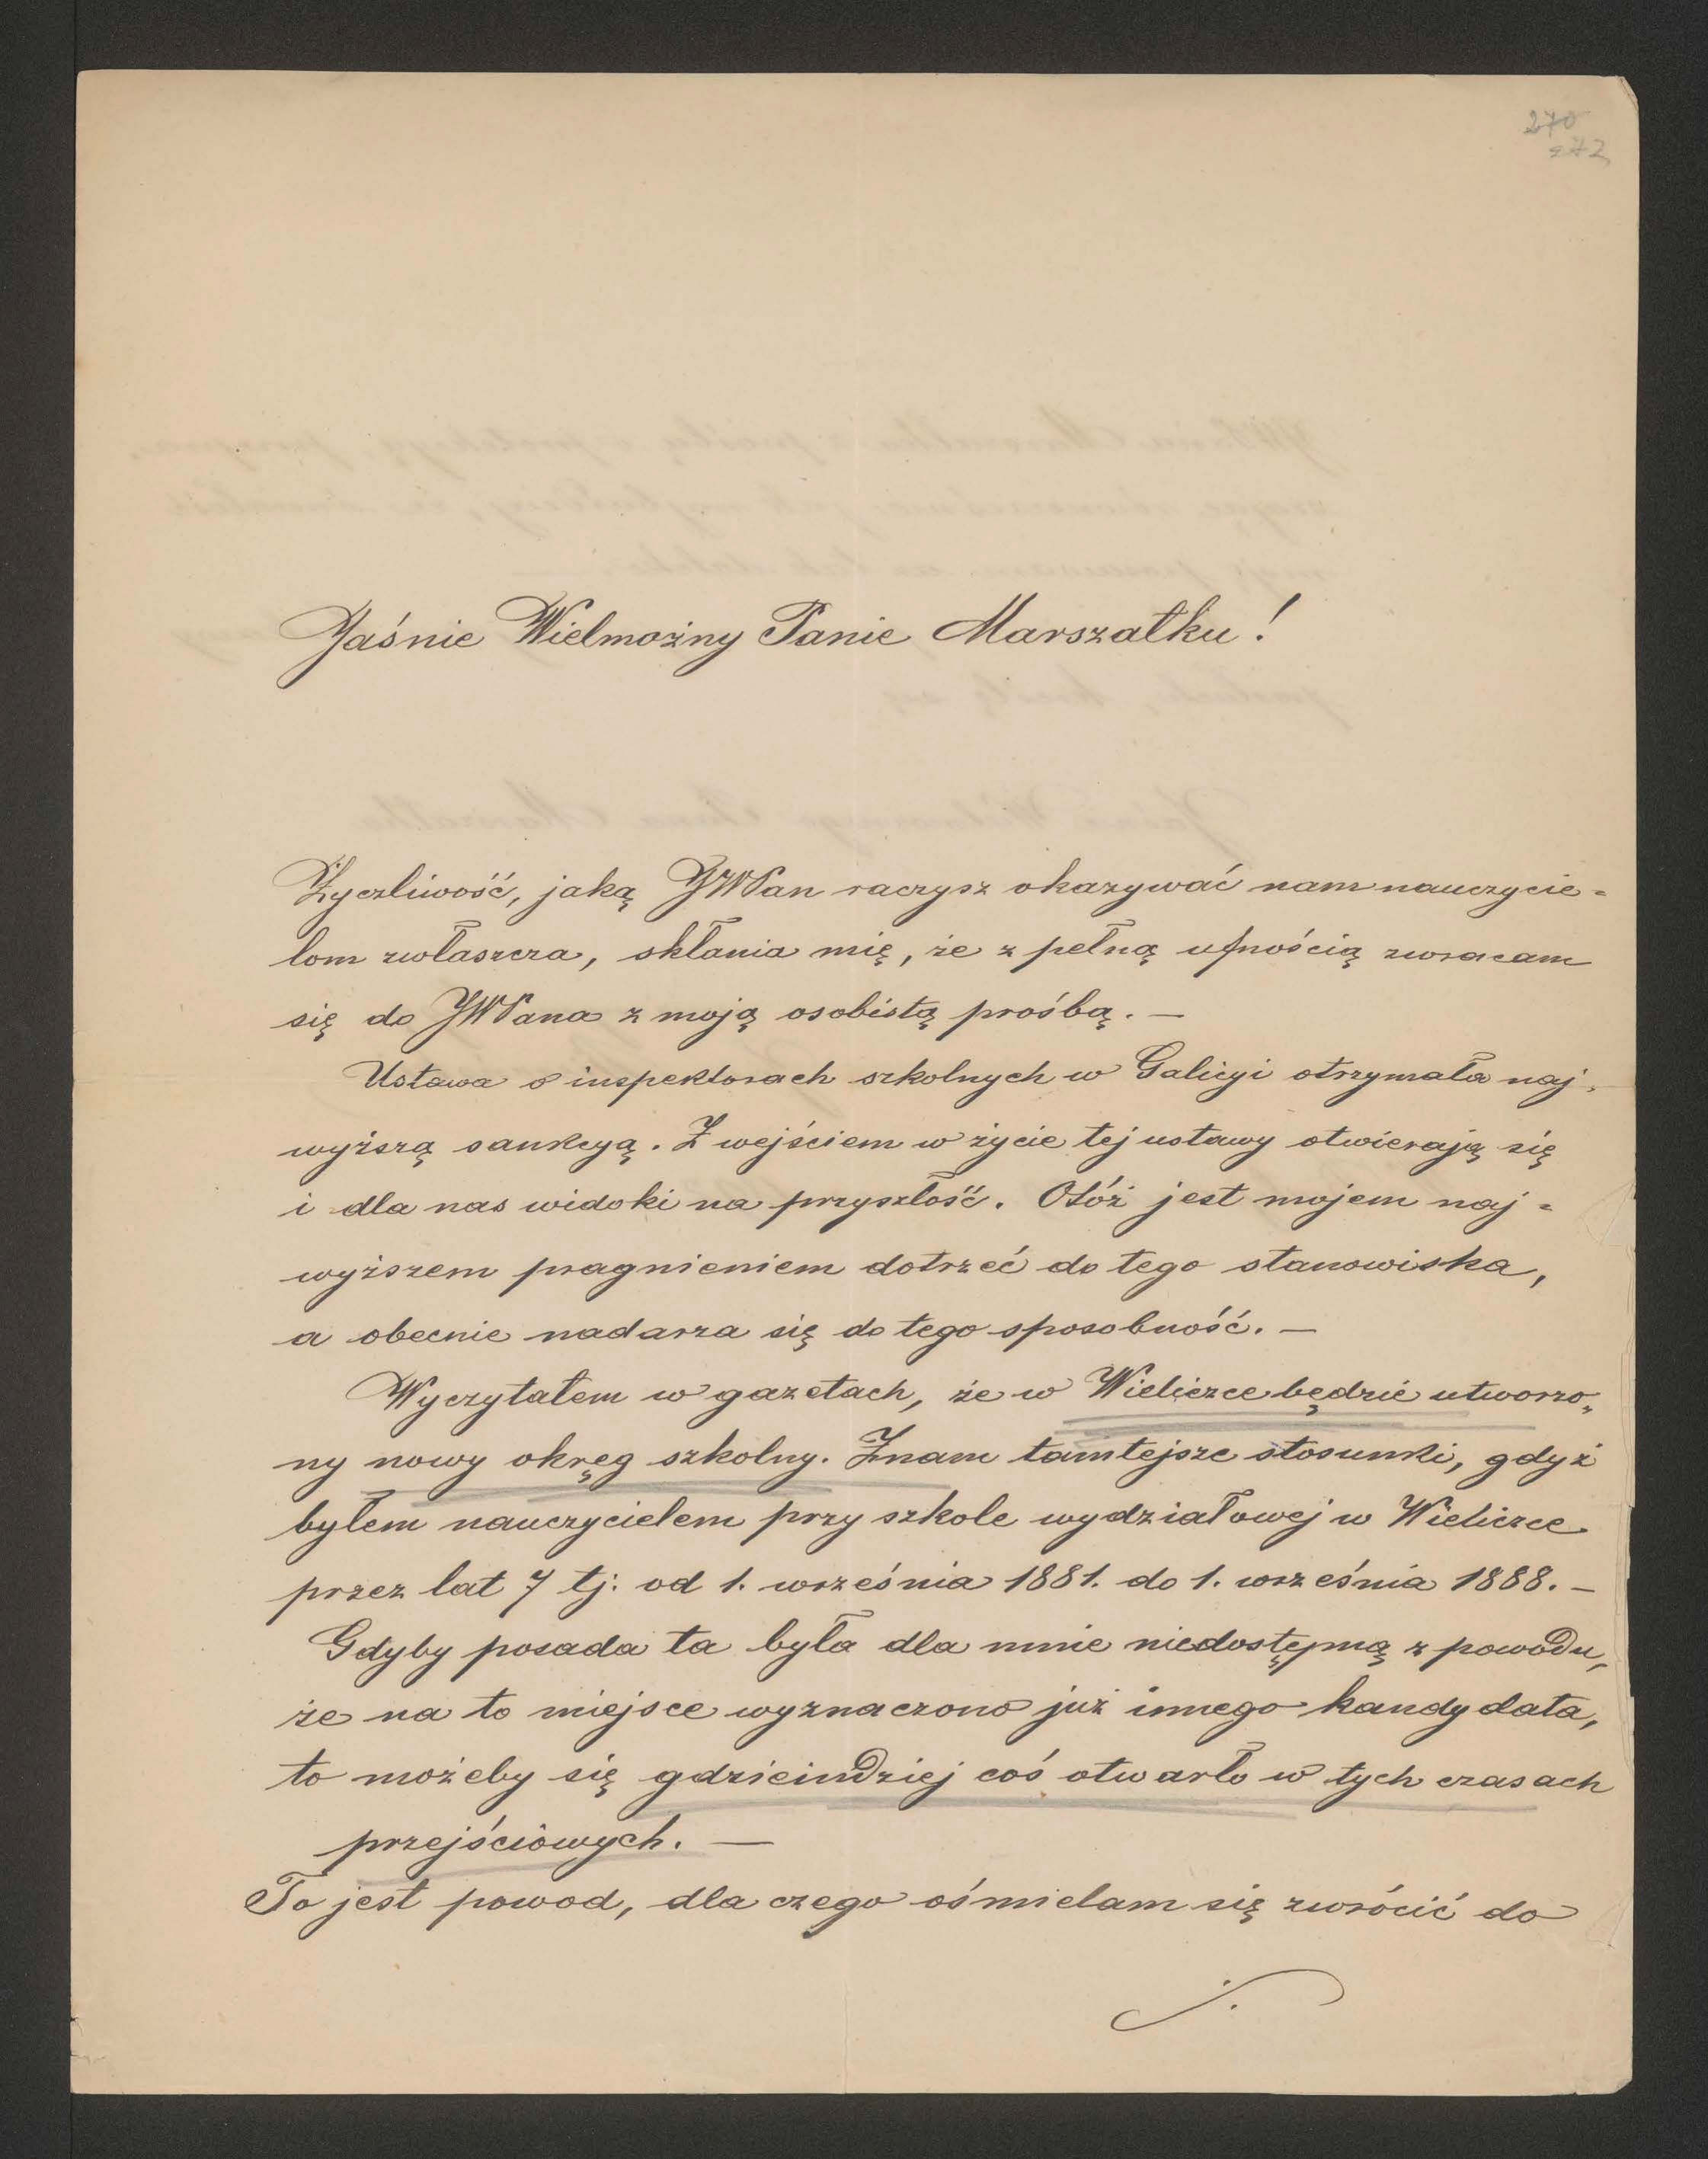 270
272
Jaśnie Wielmożny Panie Marszałku!
Życzliwość, jaką JWPan raczysz okazywać nam nauczycie=
lom zwłaszcza, skłania mię, że z pełną ufnością zwracam
się do JWPana z moją osobistą prośbą. —
Ustawa o inspektorach szkolnych w Galicyi otrzymała naj-
wyższą sankcyą. Z wejściem w życie tej ustawy otwierają się
i dla nas widoki na przyszłość. Otóż jest mojem naj=
wyższem pragnieniem dotrzeć do tego stanowiska,
a obecnie nadarza się do tego sposobność. —
Wyczytałem w gazetach, że w Wieliczce będzie utworzo„
ny nowy okręg szkolny. Znam tamtejsze stosunki, gdyż
byłem nauczycielem przy szkole wydziałowej w Wieliczce
przez lat 7 tj. od 1. września 1881. do 1. września 1888. –
Gdyby posada ta była dla mnie niedostępną z powodu,
że na to miejsce wyznaczono już innego kandydata,
to możeby się gdzieindziej coś otwarło w tych czasach
przejściowych. —
To jest powod, dla czego ośmielam się zwrócić do